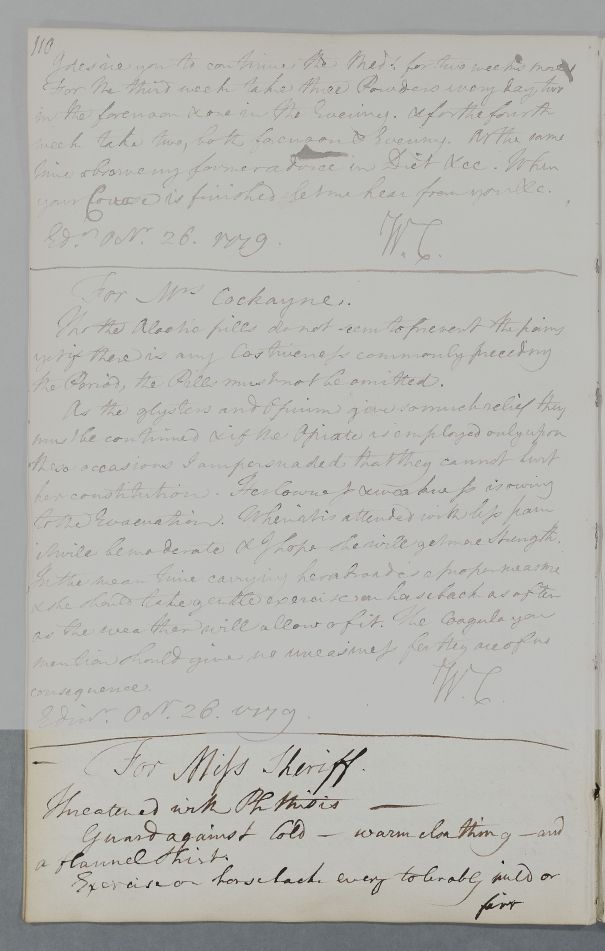 110
I desire you to continue the Med.s for two weeks more
For the third week take three Powders every day, two
in the forenoon & one in the Evening. & for the fourth
week take two, both forenoon & Evening. At the same
time observe my former advice in Diet &cc. When
your Course is finished let me hear from you &c.
Ed.r Oct. 26. 1779. W.C.
For Mrs Cockayne.
Tho the Aloetic pills do not seem to prevent the pains
yet if there is any Costiveness commonly preceding
the Period, the Pills must not be omitted.
As the glysters and Opium give so much relief they
must be continued & if the Opiate is employed only upon
these occasions I am persuaded that they cannot hurt
her constitution. Her lowness & weakness is owing
to the Evacuation. When it is attended with less pain
it will be moderate & I hope she will get more Strength.
In the mean time carrying her abroad is a proper measure
& she should take gentle exercise on horseback as often
as the weather will allow of it. The Coagula you
mention should give no uneasiness for they are of no
consequence. W.C.
Edinr. Oct. 26. 1779.
For Miss Sheriff.
Threatened with Phthisis —
Guard against Cold — warm cloathing — and
a flannel Shirt.
Exercise on horseback every tolerably mild or
fair